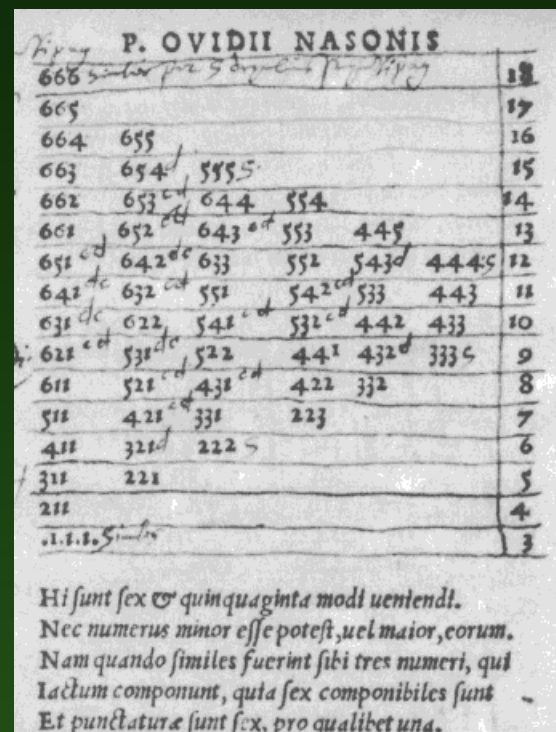 P. OVIDII NASONIS
666 18
665 17
664 655 16
663 654 d 555 s 15
662 653 cd 644 554 14
661 652 cd 643 cd 553 445 13
651 cd 642 dc 633 552 543 d 444 s 12
641 dc 632 cd 551 542 cd 533 443 11
631 dc 622 541 cd 532 cd 442 433 10
621 cd 531 dc 522 441 432 d 333 s 9
611 521 cd 431 cd 422 332 8
511 421 cd 331 223 7
411 321 d 222 s 6
311 221 5
211 4
.1.1.1. 3
Hi sunt sex & quinquaginta modi ueniendi.
Nec numerus minor esse potest, uel maior, eorum.
Nam quando similes fuerint sibi tres numeri, qui
Iactum componunt, quia sex componibiles sunt
Et punctaturæ sunt sex, pro qualibet una.